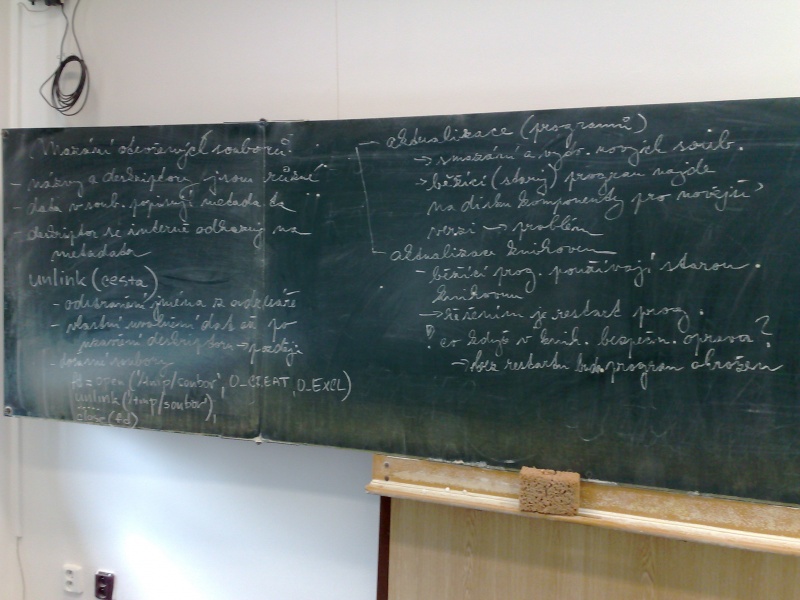 Mazání otevřených souborů
- názvy a deskriptory jsou různé
- data v soub. popisují metadata
- deskriptor se interně odkazuje na
metadata
unlink(cesta)
- odstranění jména z adresáře
- vlastní uvolnění dat až po
uzavření deskriptoru → později
- dočasné soubory
fd = open('/tmp/soubor', O_CREAT, O_EXCL)
unlink('/tmp/soubor');
close(fd)
- aktualizace (programů)
→ smazání a vytvo. nových soub.
→ běžící (starý) program najde
na disku komponenty pro novější
verzi → problém
- aktualizace knihoven
- běžící prog. používají starou
knihovnu
→ řešením je restart prog.
! co když v knih. bezpečn. oprava?
→ bez restartu bude program ohrožen